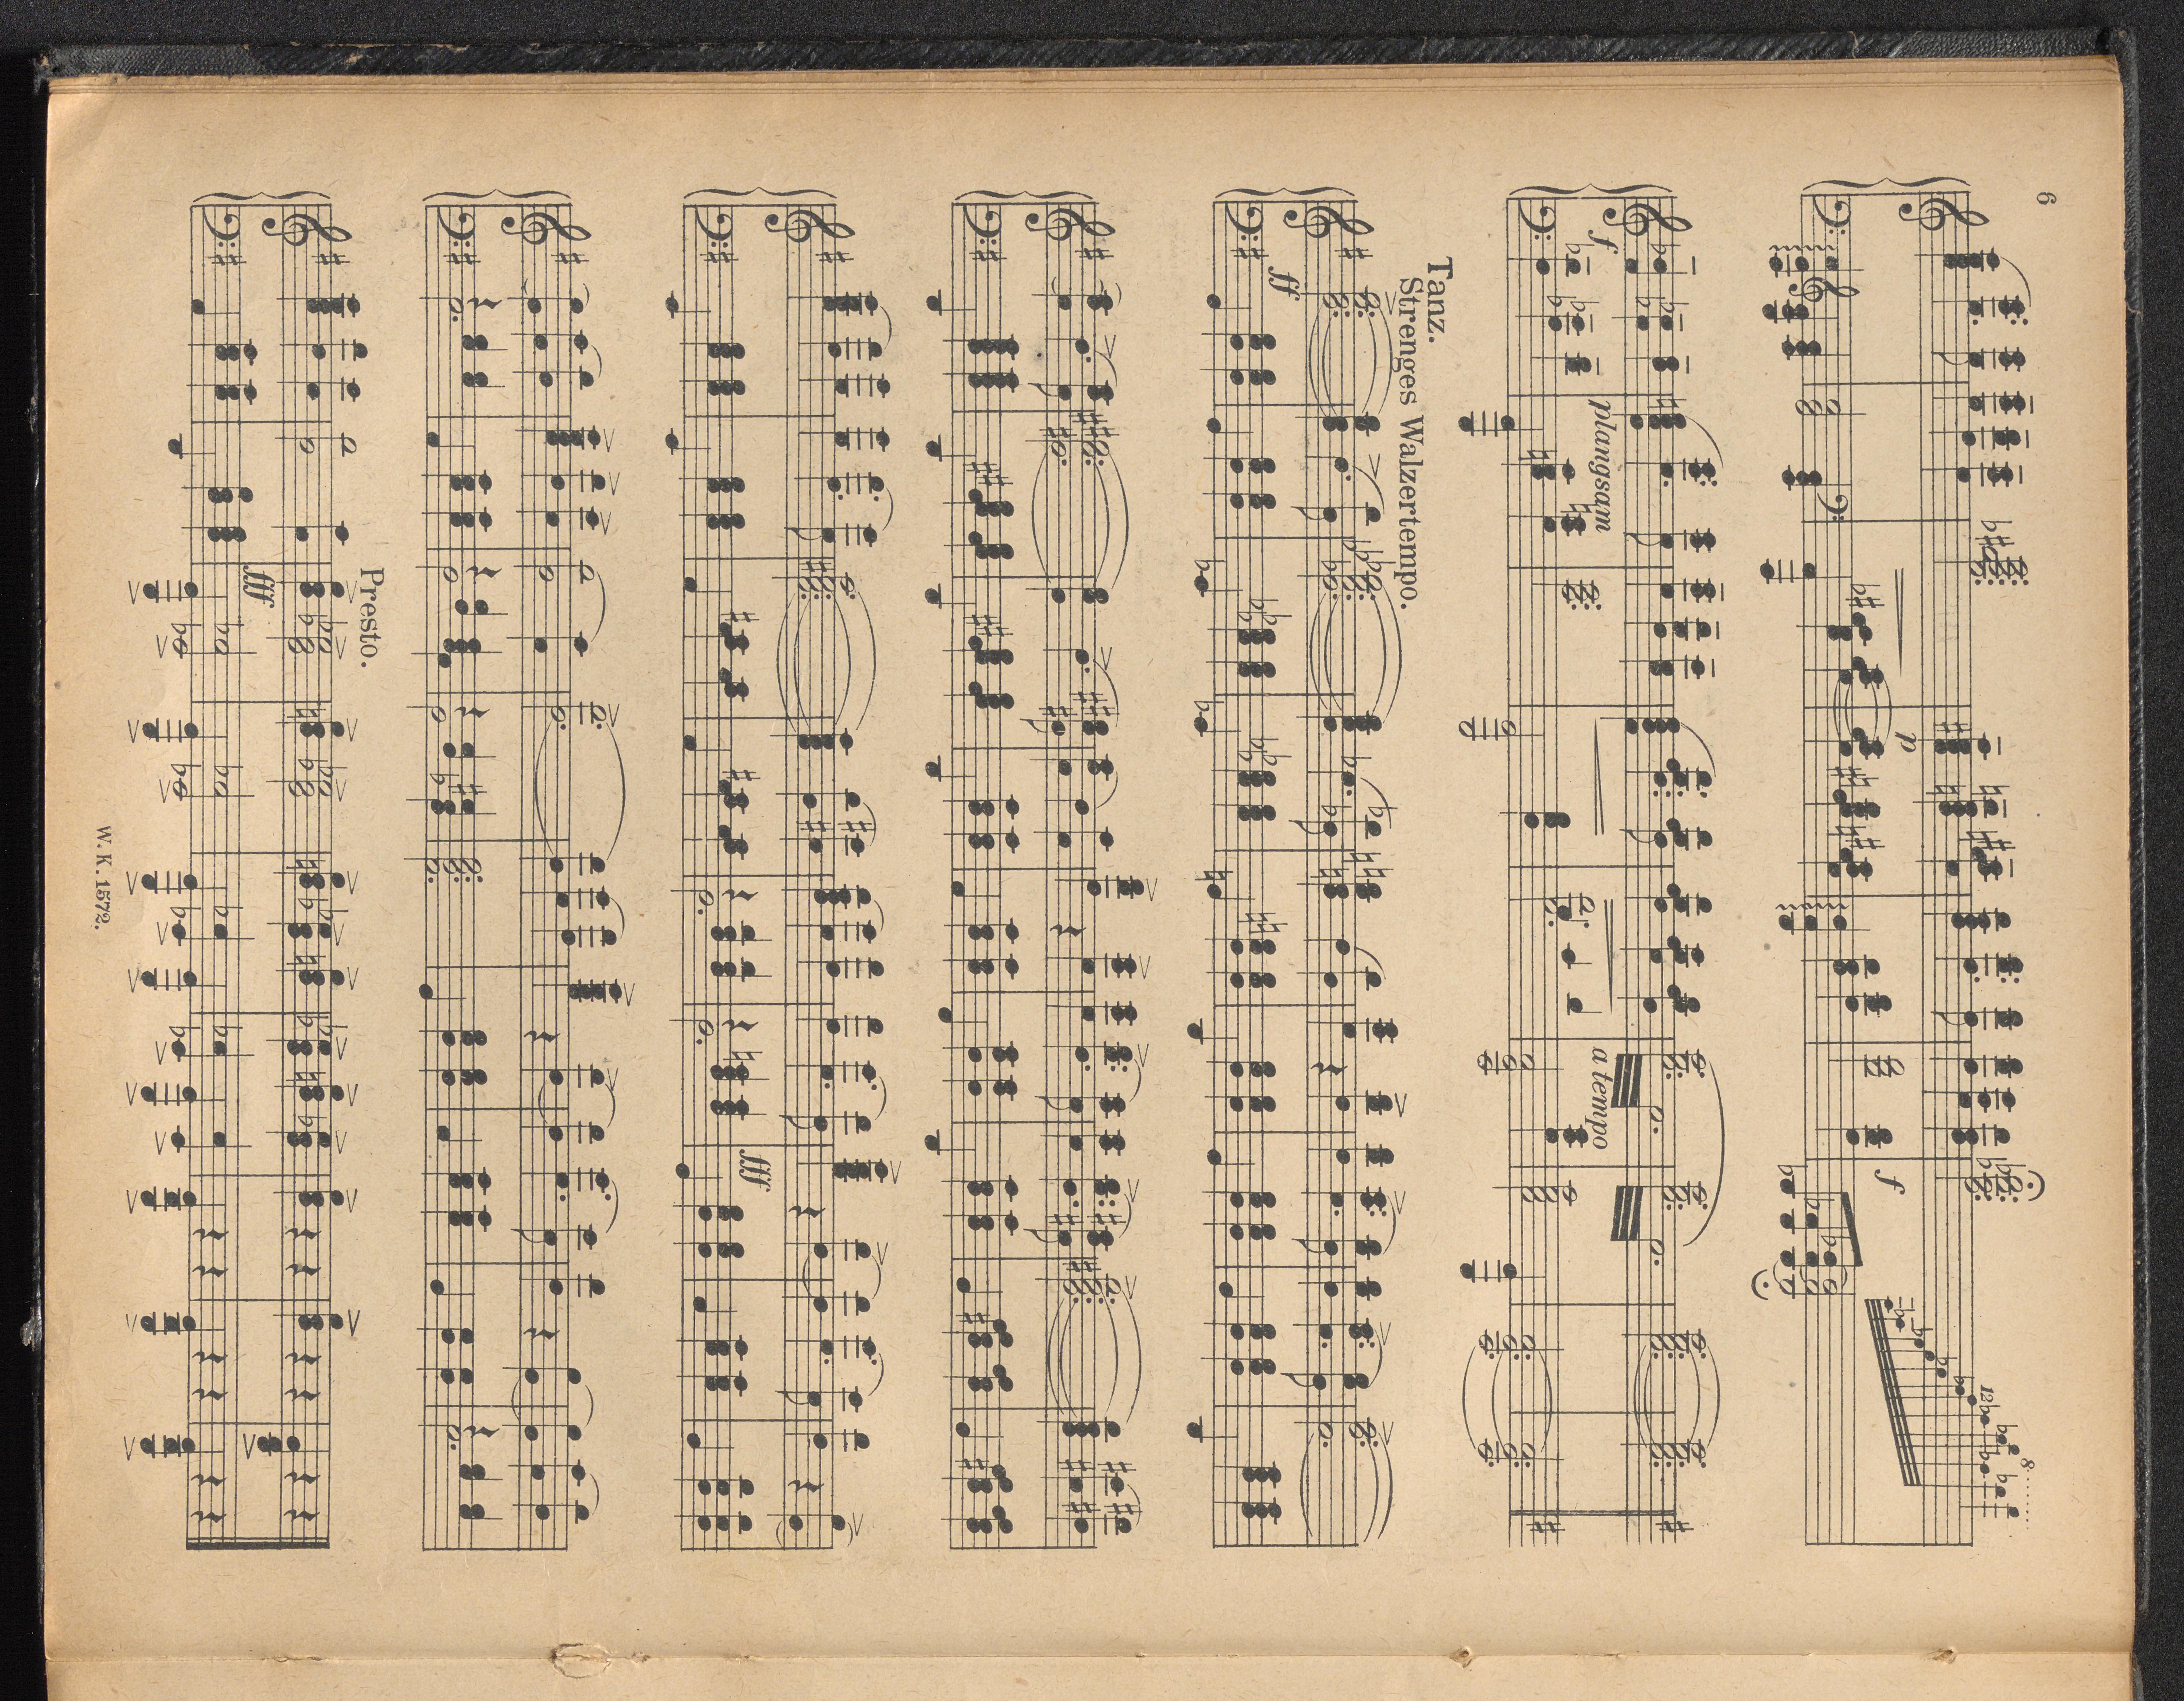 6
p
f
12
8........
f
plangsam
a tempo
Tanz.
Strenges Walzertempo.
ff
fff
Presto.
fff
W. K. 1572.